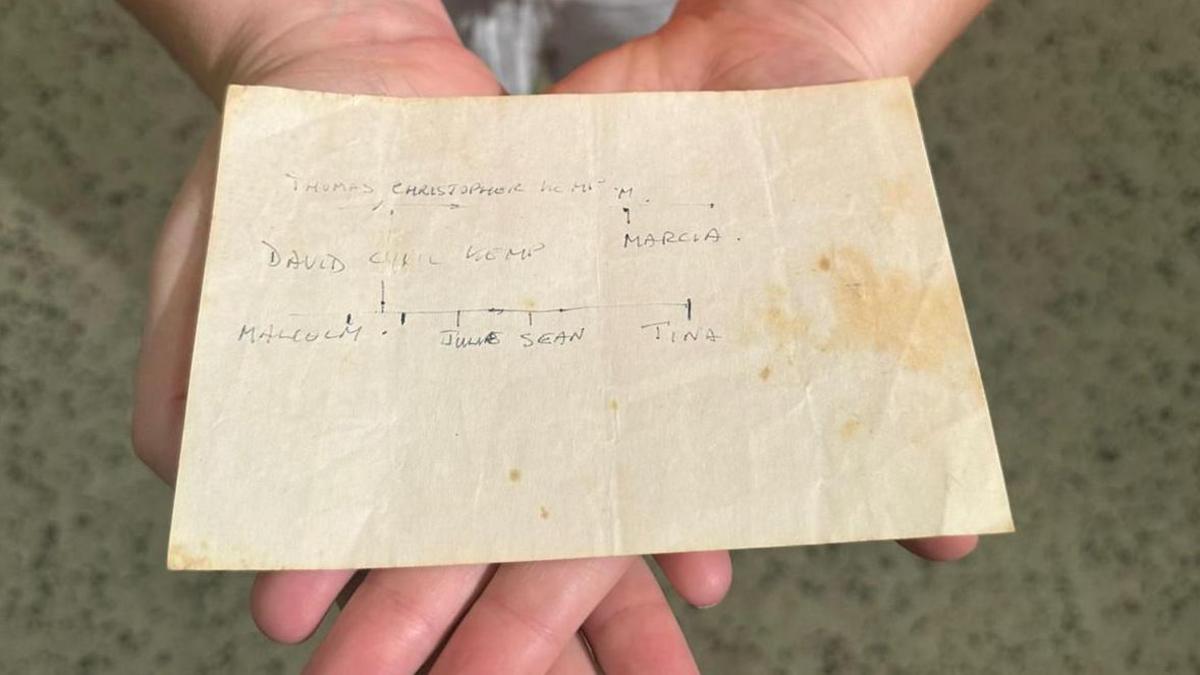 THOMAS CHRISTOPHER KEMP M.
MARCIA.
DAVID CYRIL KEMP
MALCOLM. JULIE SEAN TINA